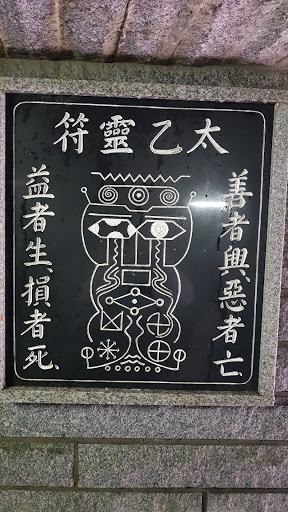 太乙靈符
善者興惡者亡
益者生、損者死、